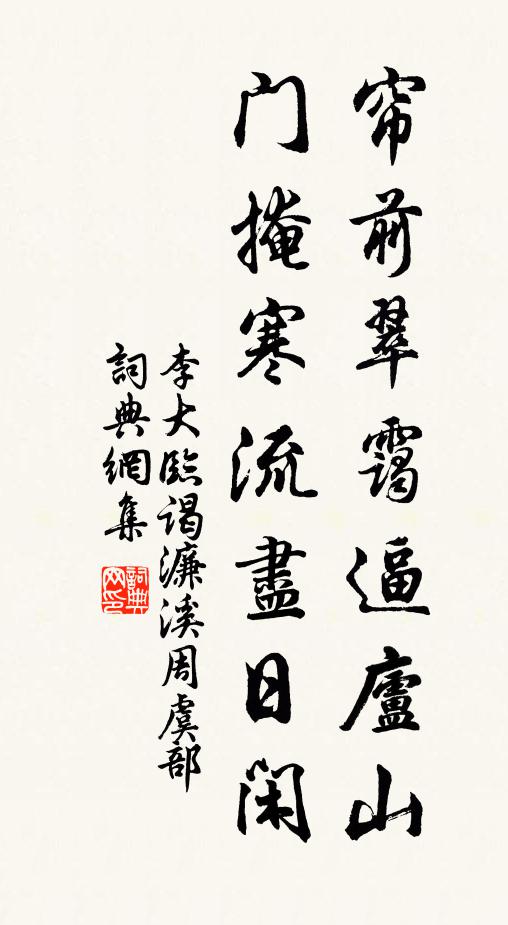 帘前翠霭逼廬山
门掩寒流盡日闲
李大臨谒濂溪周虞部
詞典網集
詞典网印